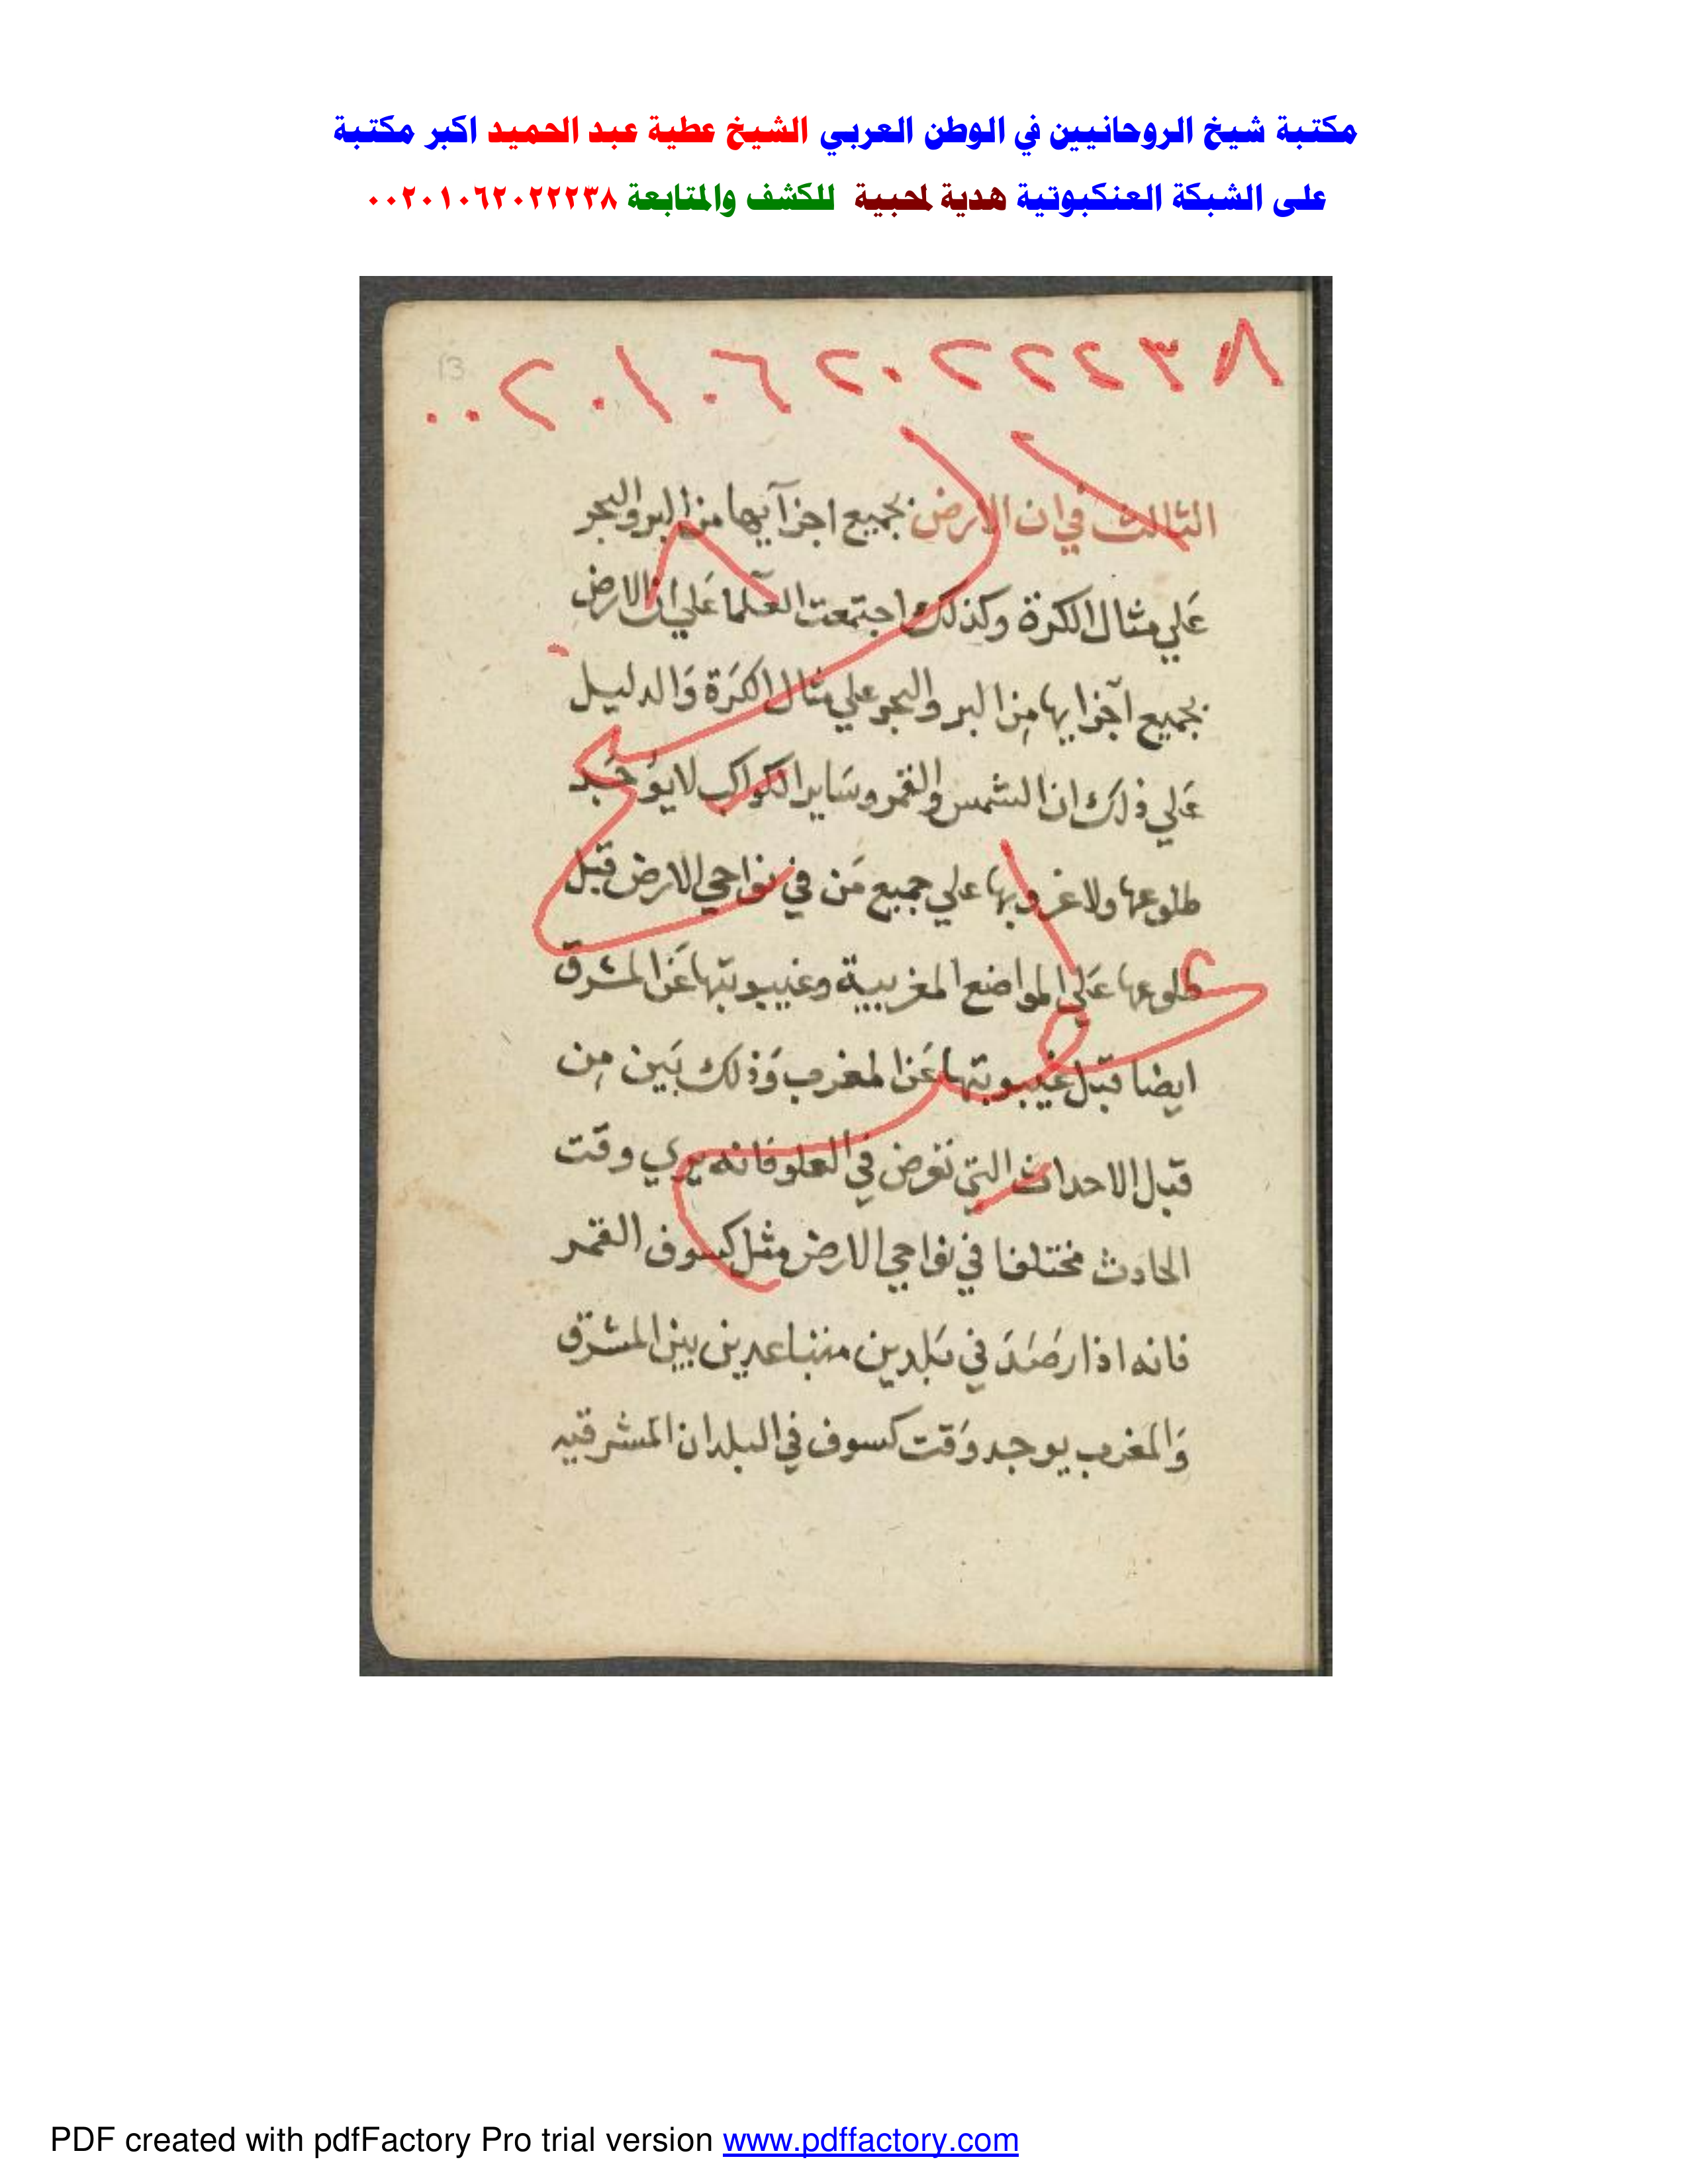 مكتبة شيخ الروحانيين في الوطن العربي الشيخ عطية عبد الحميد اكبر مكتبة
على الشبكة العنكبوتية هدية لمحبية للكشف والمتابعة ٠٠٢٠١٠٦٢٠٢٢٢٣٨
13
٠٠٢٠١٠٦٢٠٢٢٢٣٨
الثالث في ان الارض بجميع اجزآيها من البر والبحر
عَلي مثال الكرة وكذلك اجتمعت العلما عَلي ان الارض
بجميع اجزايها مِن البر والبحر علي مثال الكرَة وَالدليل
عَلي ذلك ان الشمس والقمر وسَاير الكواكب لا يوُجَد
طلوعها ولا غروبها علي جميع مَن في نواحي الارض قبل
طلوعها عَلي المواضع المغربيية وغيبوبتها عَن المشرق
ايضا قبل غيبوبتها عَن المغرب وَذلك بَين مِن
قبل الاحداث التي تعرض في العلو فانه يري وقت
الحادث مختلفا في نواحي الارض مثل كسوف القمر
فانه اذا رصَدَ في بَلدين متباعدين بين المشرق
وَالمغرب يوجد وَقت كسوف في البلدان المشرقيه
الشيخ عطية
PDF created with pdfFactory Pro trial version www.pdffactory.com